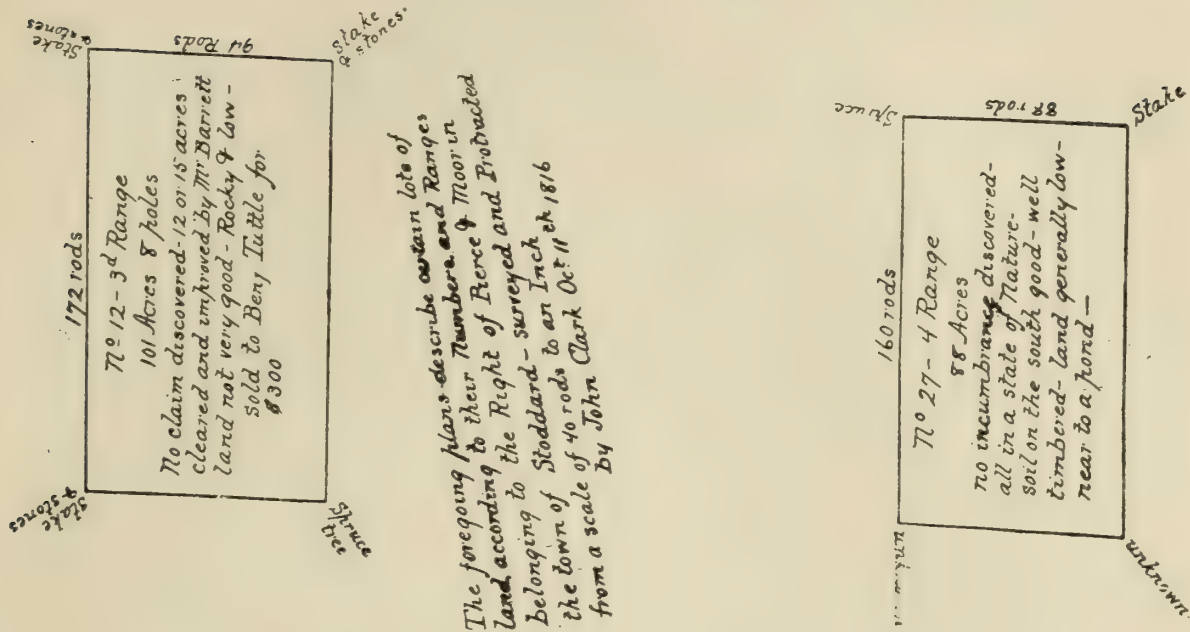 Stake
& stones
94 Rods
Stake
& stones.
172 rods
No 12 - 3d Range
101 Acres 8 poles
No claim discovered - 12 or 15 acres
cleared and improved by Mr Barrett
land not very good - Rocky & low -
Sold to Benj Tuttle for
$300
Stake
& stones
Spruce
The foregoing plans describe certain lots of
land according to their Numbers and Ranges
belonging to the Right of Pierce & Moor in
the town of Stoddard - surveyed and Protracted
from a scale of 40 rods to an Inch
By John Clark Oct 11th 1816
Spruce
88 rods
Stake
160 rods
No 27 - 4 Range
88 Acres
no incumbrance discovered -
all in a state of Nature -
soil on the south good - well
timbered - land generally low -
near to a pond —
unknown